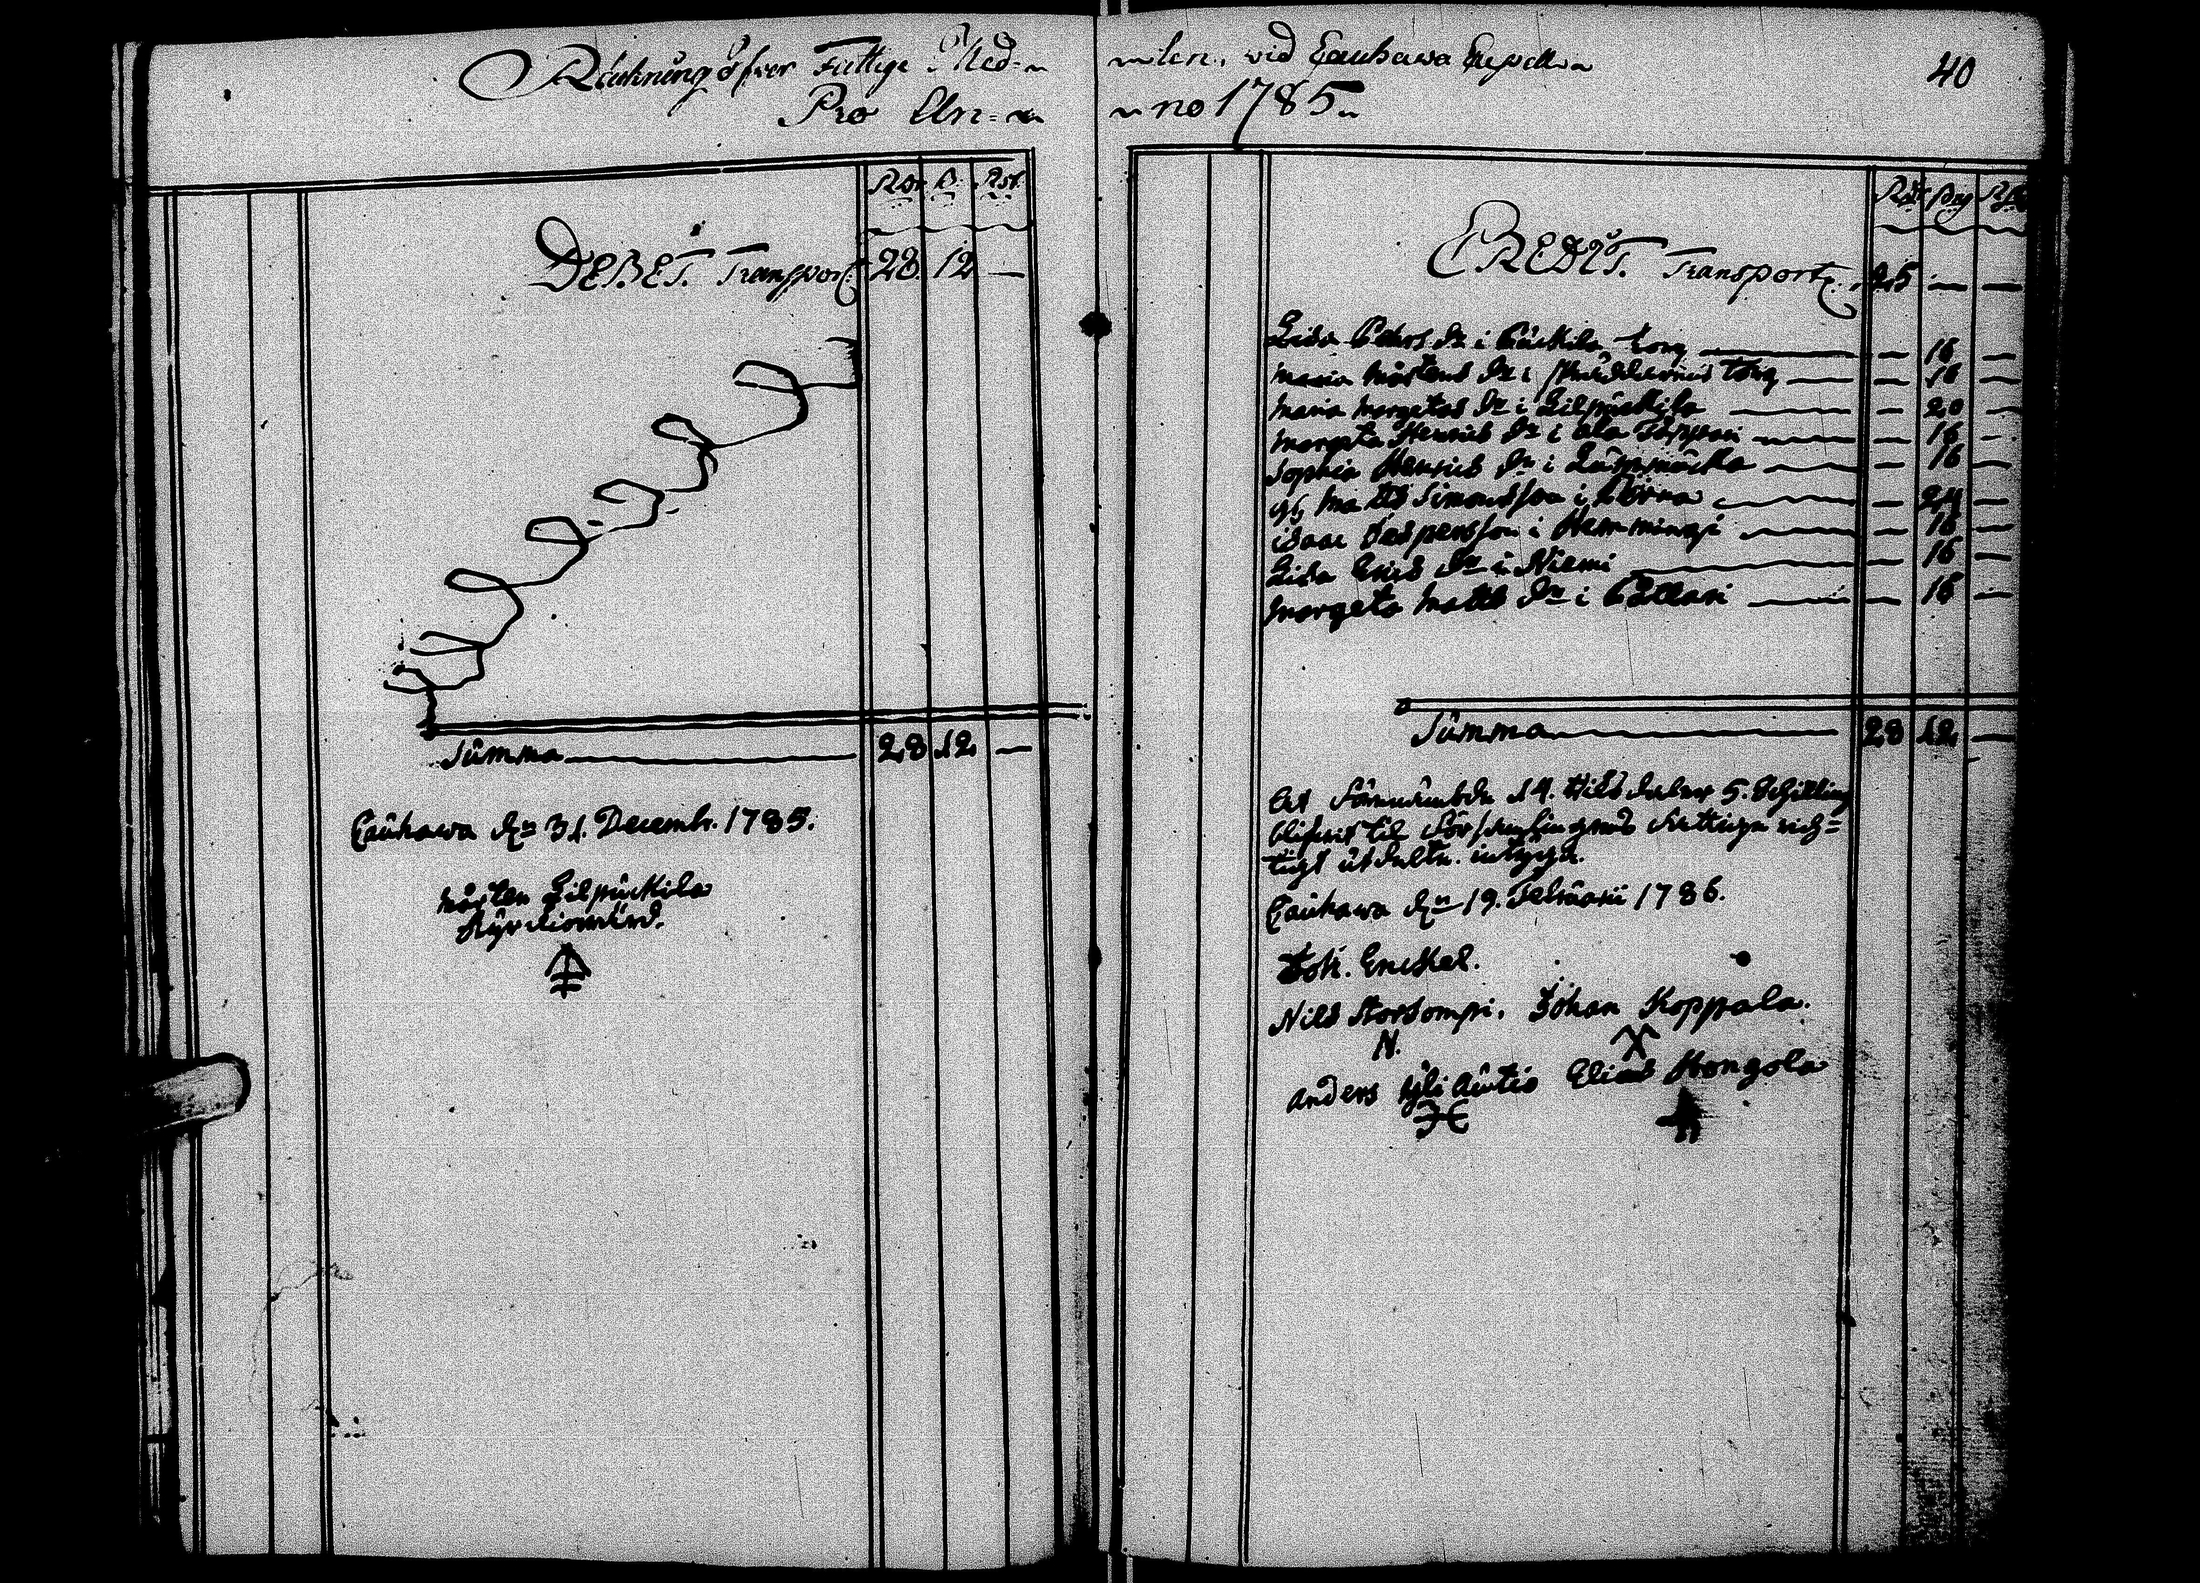 Räkning öfver Fattige Med=
len, vid Cauhava Capell
40
Pro An=
no 1785
Rdr ß. Rst.
DEBET. Transport 28. 12 —
Summa 28 12 —
Cauhava dn 31. Decembr. 1785.
Mårten Lilpuckila
Kyrckiowärd.
Rdr ßg Rst
CREDIT. Transport 25 — —
Lisa Pehrs dr i Puckila torp — 16 —
Maria Mårtens dr i torp — 16 —
Maria Margetas dr i Lilpuckila — 20 —
Margeta Henrics dr i Ala — 16 —
Sophia Henrics dr i — 16 —
Matts Simonsson i — 24 —
Isaac Jespersson i Hemmingi — 16 —
Lisa Erics dr i Niemi — 16 —
Margeta Matts dr i Pällari — 16 —
Summa 28 12 —
At förenämbde 14. Riksdaler 5. Schilling
blifvit til Församlingens fattiga rich=
tigt utdelte. intyga.
Cauhava dn 19. Februarii 1786.
Joh. Enckel.
Nils Storsompi. Johan Koppala.
N.
Anders Yli Autio Elias Hongola